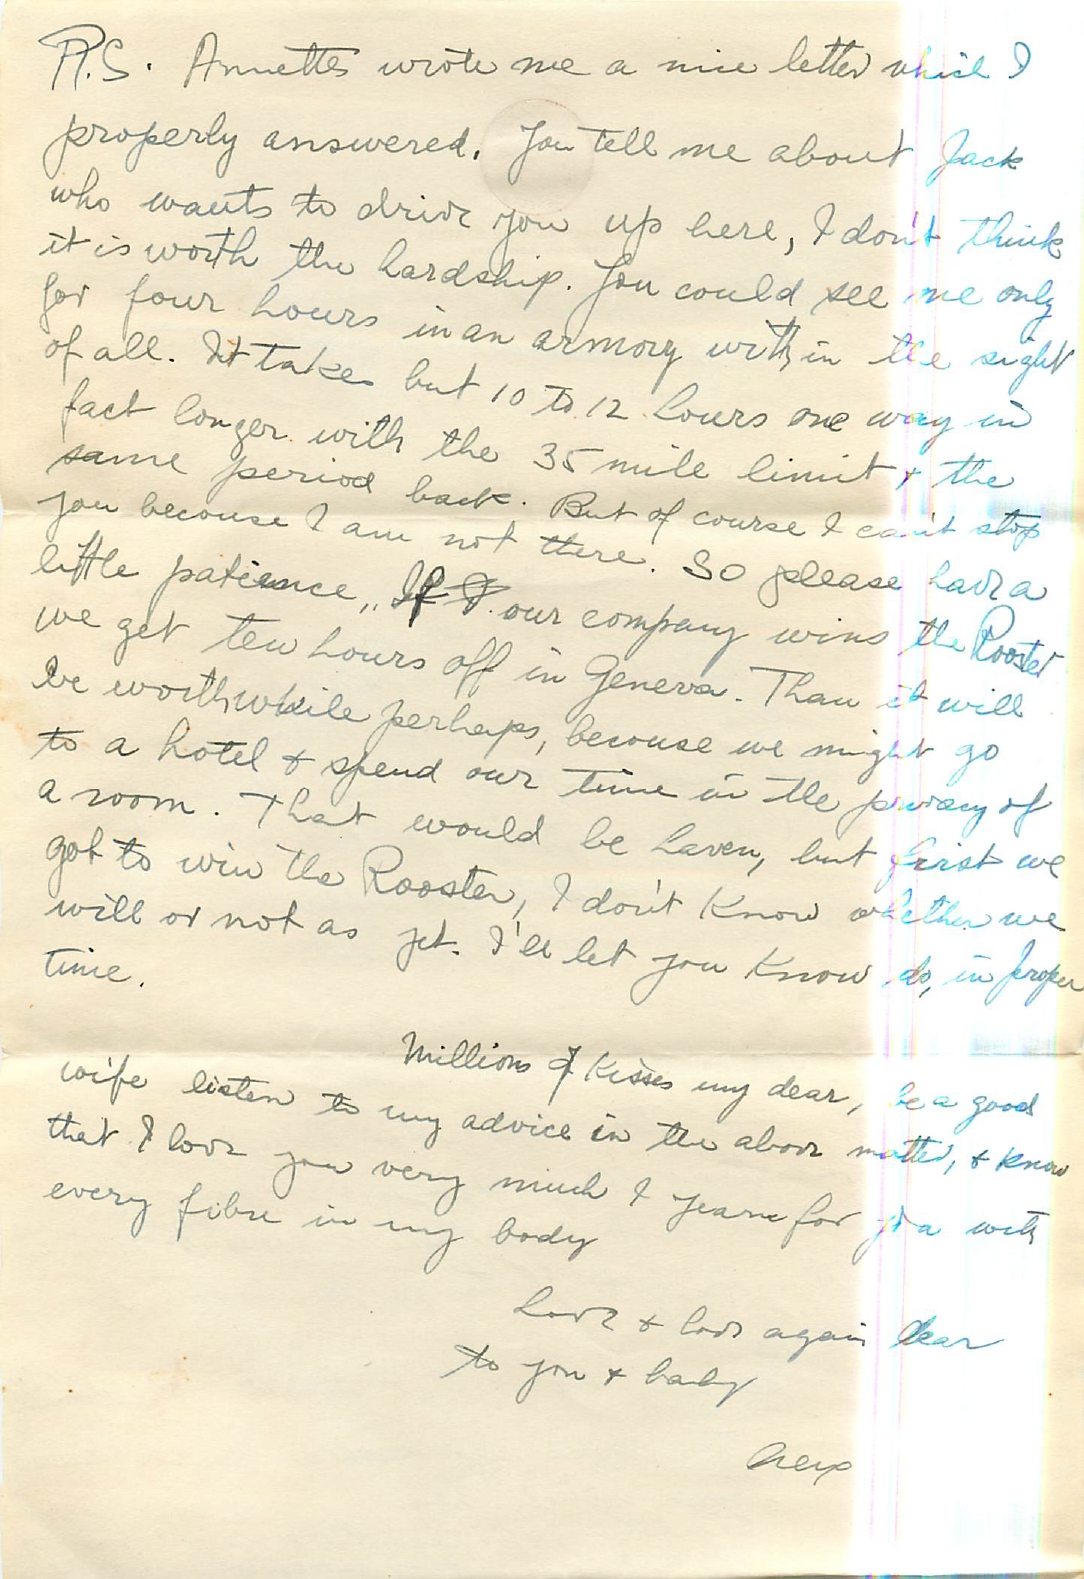 P.S. Annette wrote me a nice letter which I
properly answered. You tell me about Jack
who wants to drive you up here, I don't think
it is worth the hardship. You could see me only
for four hours in an armory with in the sight
of all. It takes but 10 to 12 hours one way in
fact longer with the 35 mile limit + the
same period back. But of course I can't stop
you becouse I am not there. So please have a
little patience, our company wins the Rooster
we get ten hours off in Geneva. Than it will
be worthwhile perhaps, becouse we might go
to a hotel & spend our time in the privacy of
a room. That would be haven, but first we
got to win the Rooster, I don't know whether we
will or not as yet. I'll let you know do, in proper
time.
Millions of kisses my dear, be a good
wife listen to my advice in the above matter, & know
that I love you very much I yearn for you with
every fibre in my body
Love & love again dear
to you & baby